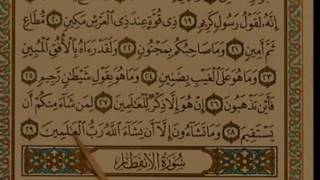 إِنَّهُ لَقَوْلُ رَسُولٍ كَرِيمٍ ١٩ ذِي قُوَّةٍ عِندَ ذِي الْعَرْشِ مَكِينٍ ٢٠ مُّطَاعٍ
ثَمَّ أَمِينٍ ٢١ وَمَا صَاحِبُكُم بِمَجْنُونٍ ٢٢ وَلَقَدْ رَءَاهُ بِالْأُفُقِ الْمُبِينِ
٢٣ وَمَا هُوَ عَلَى الْغَيْبِ بِضَنِينٍ ٢٤ وَمَا هُوَ بِقَوْلِ شَيْطَانٍ رَّجِيمٍ ٢٥
فَأَيْنَ تَذْهَبُونَ ٢٦ إِنْ هُوَ إِلَّا ذِكْرٌ لِّلْعَالَمِينَ ٢٧ لِمَن شَاءَ مِنكُمْ أَن
يَسْتَقِيمَ ٢٨ وَمَا تَشَاءُونَ إِلَّا أَن يَشَاءَ اللَّهُ رَبُّ الْعَالَمِينَ ٢٩
سُورَةُ الِانفِطَارِ